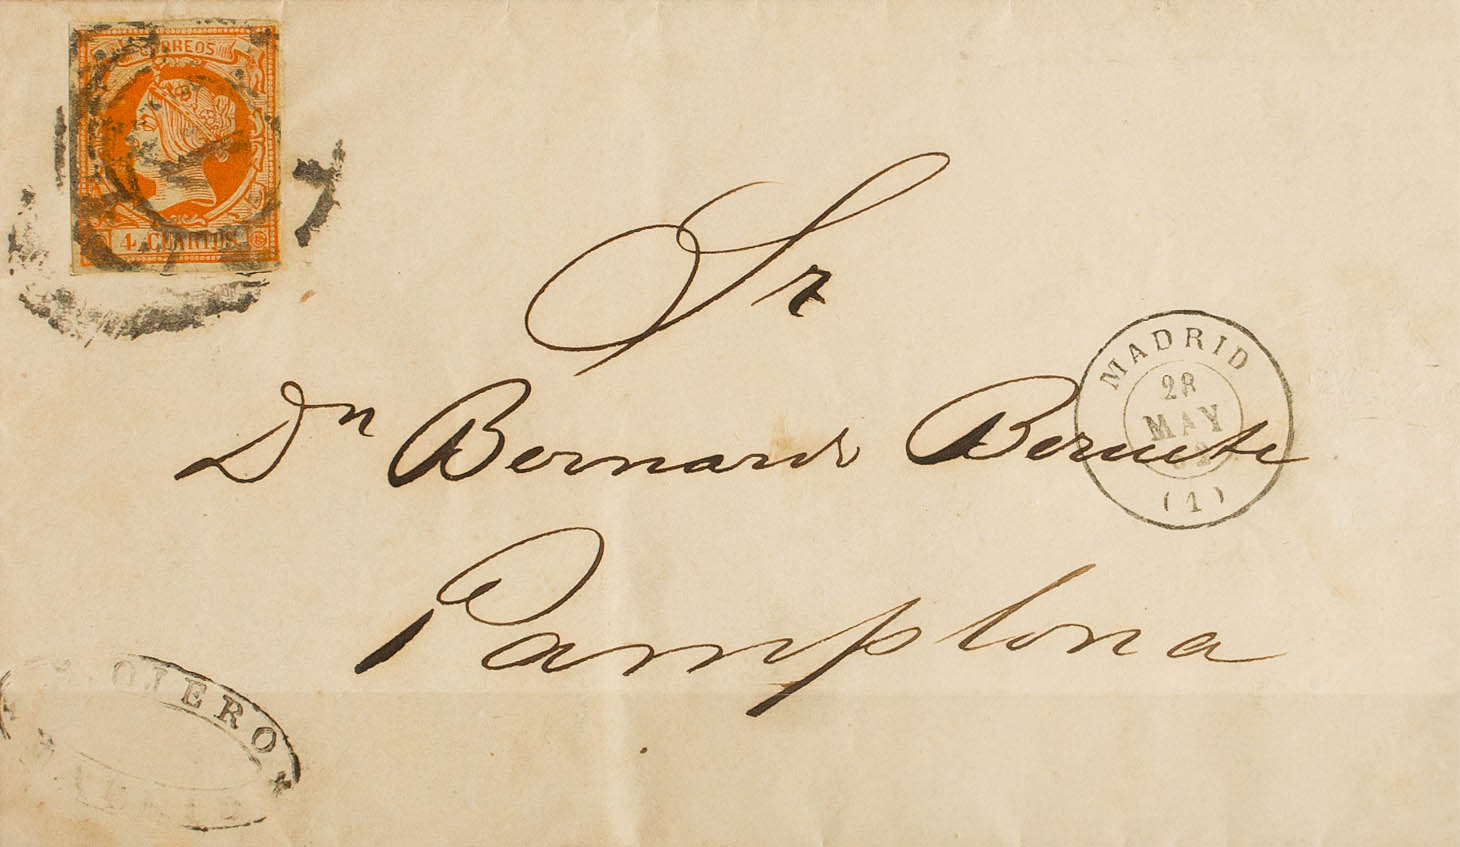 CORREOS
4 CUARTOS
Sr
Dn Bernardo Beruete
Pamplona
MADRID
28
MAY
62
(1)
OJERO